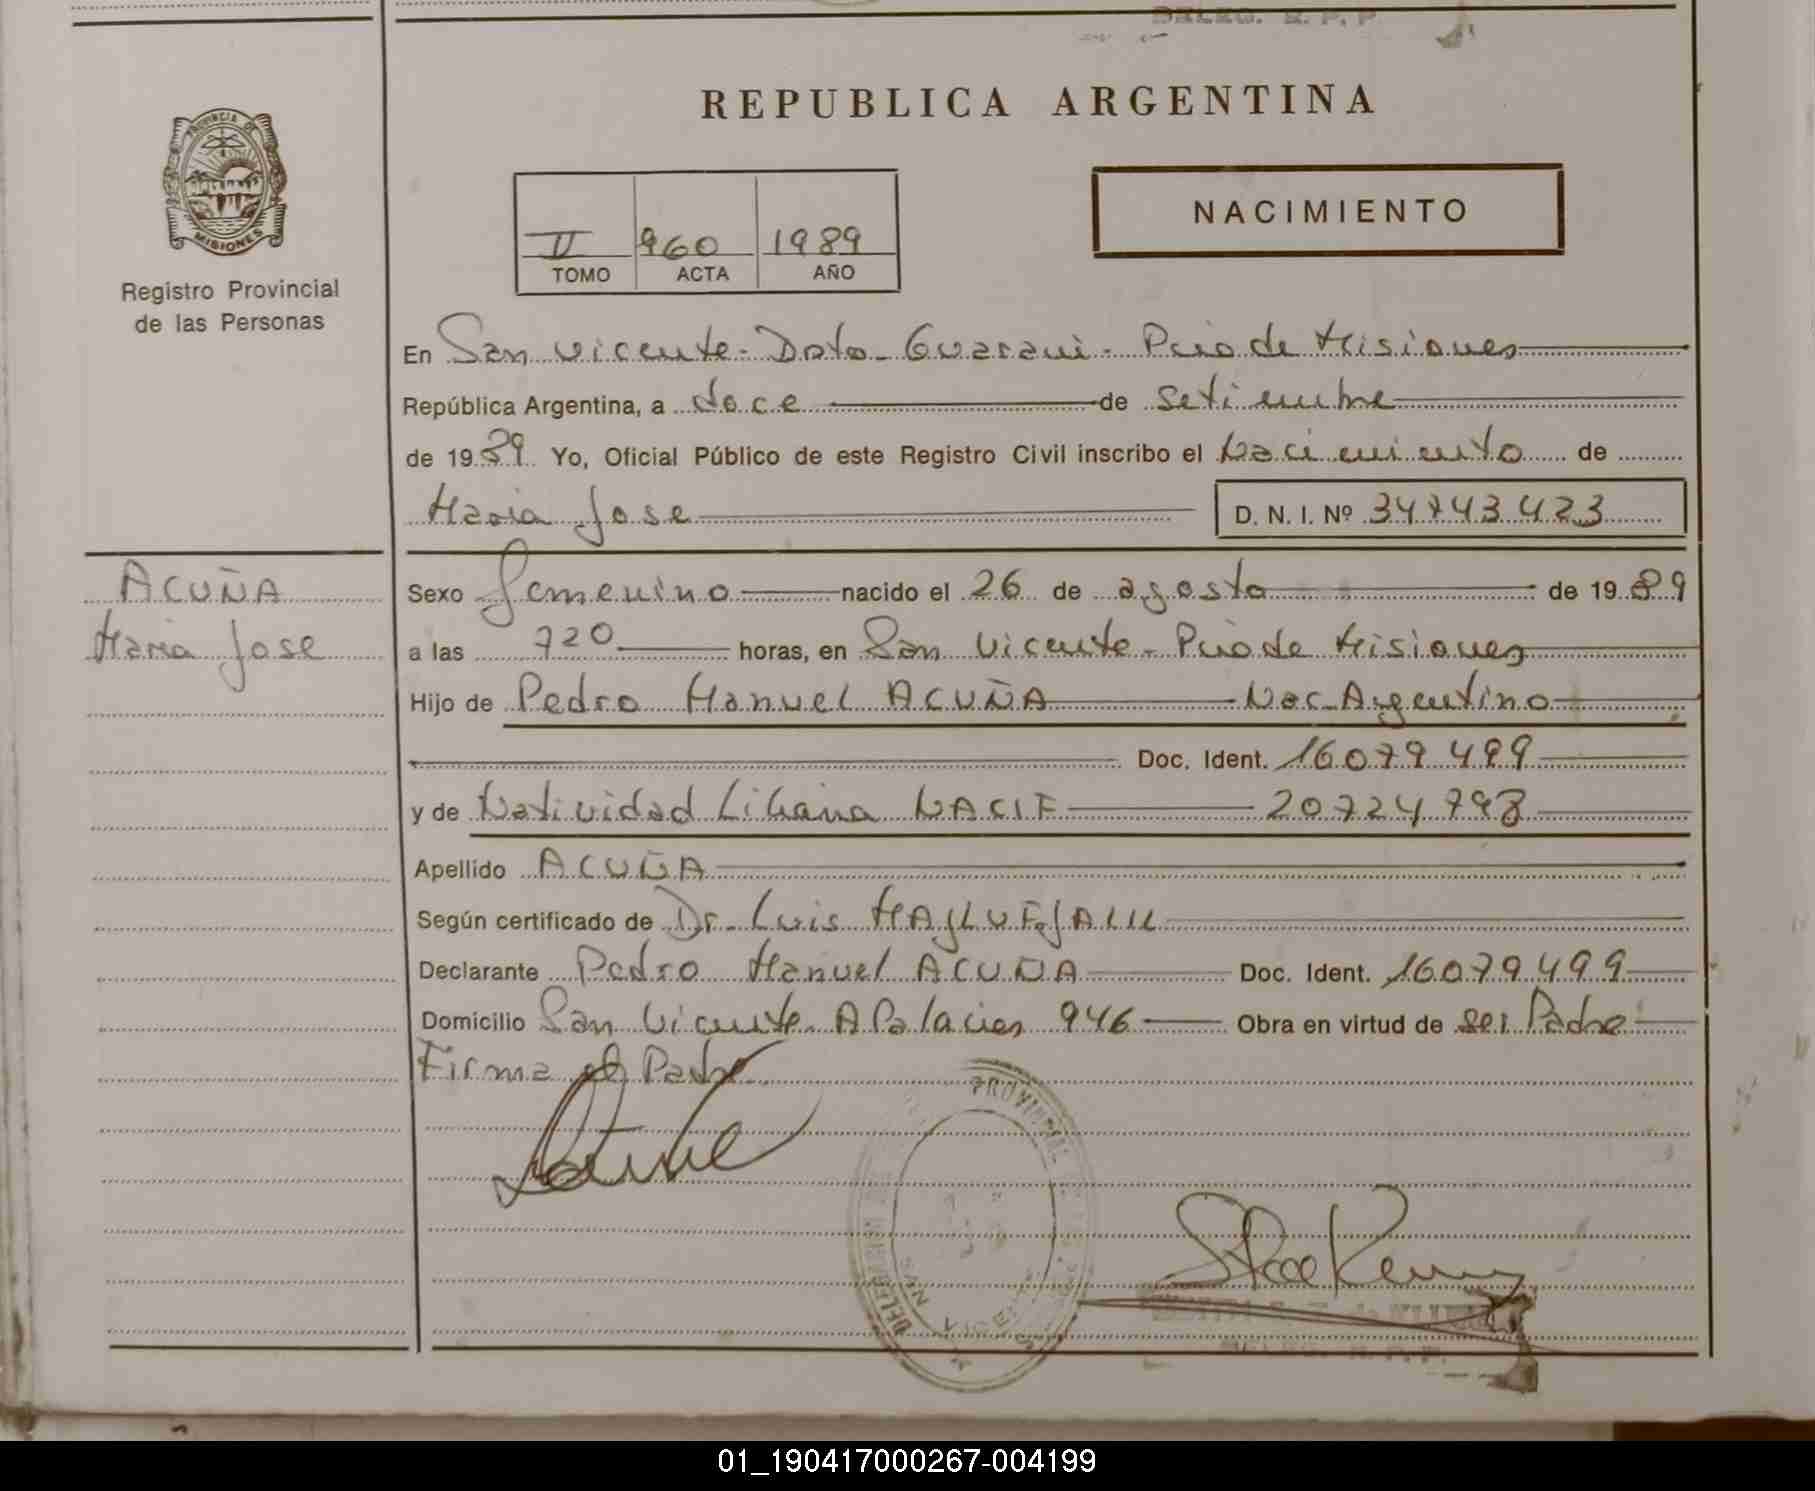 DELEG. R. P. P.
REPUBLICA ARGENTINA
PROVINCIA DE
MISIONES
Registro Provincial
de las Personas
II 960 1989
TOMO ACTA AÑO
NACIMIENTO
En San Vicente - Dpto. Guarani - Pcia de Misiones
República Argentina, a doce de setiembre
de 1989 Yo, Oficial Público de este Registro Civil inscribo el Nacimiento de
Maria Jose D. N. I. Nº 34743423
ACUÑA
Maria Jose
Sexo femenino nacido el 26 de agosto de 1989
a las 720 horas, en San Vicente - Pcia de Misiones
Hijo de Pedro Manuel ACUÑA Nac. Argentino
Doc. Ident. 16079499
y de Natividad Liliana NACIF 20724798
Apellido ACUÑA
Según certificado de Dr. Luis
Declarante Pedro Manuel ACUÑA Doc. Ident. 16079499
Domicilio San Vicente A Palacios 946 Obra en virtud de ser Padre
Firma el Padre
PROVINCIAL
SAN VICENTE
DELEG. R. P. P.
01_190417000267-004199